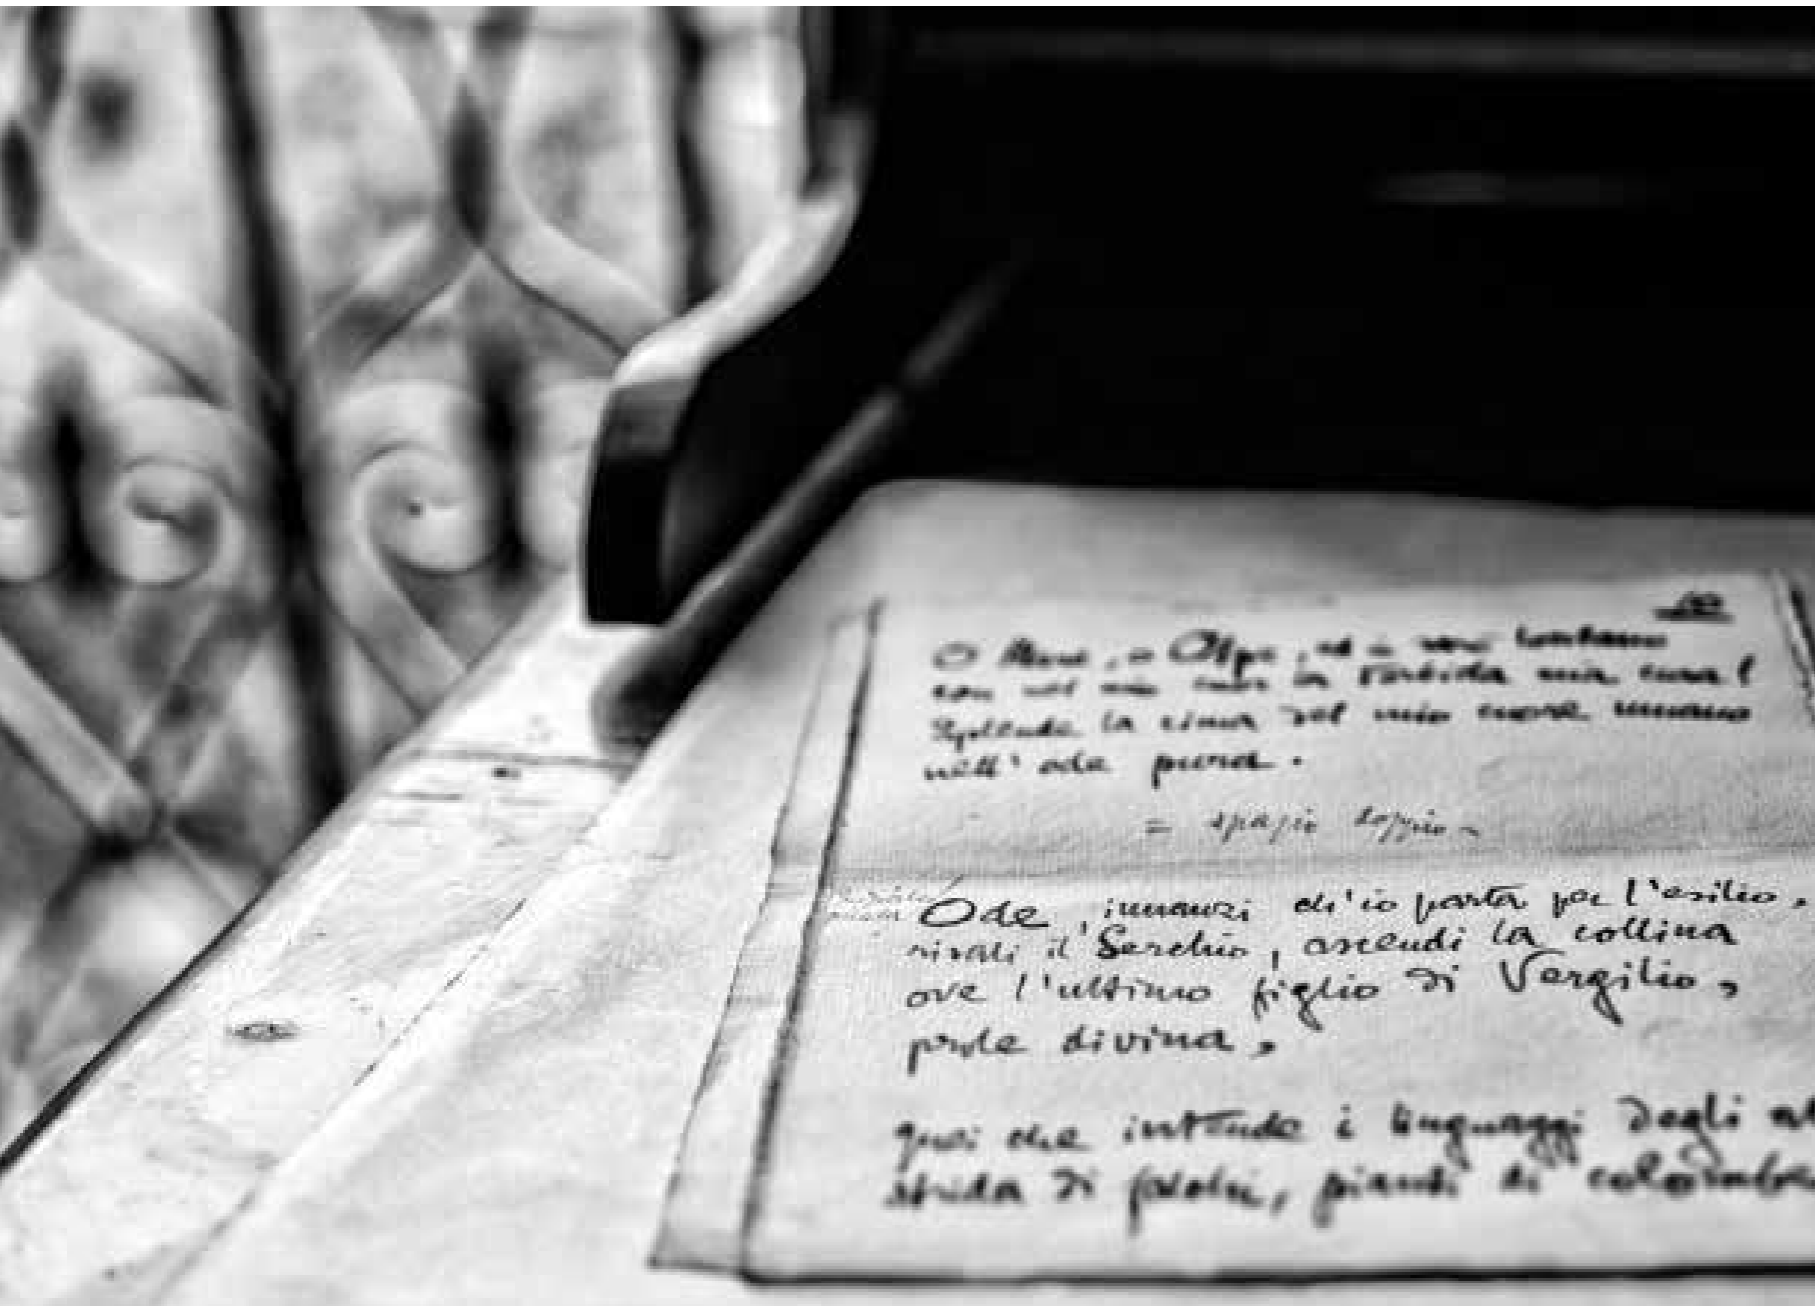 O Mare, o Alpe, ed lontano
con nel mio cuor la torbida mia cura!
Splende la cima del mio cuore umano
nell'ode pura.
= spazio doppio -
Ode, innanzi ch'io parta per l'esilio,
risali il Serchio, ascendi la collina
ove l'ultimo figlio di Vergilio,
prole divina,
quei che intende i linguaggi degli al
strida di falchi, pianti di colombe